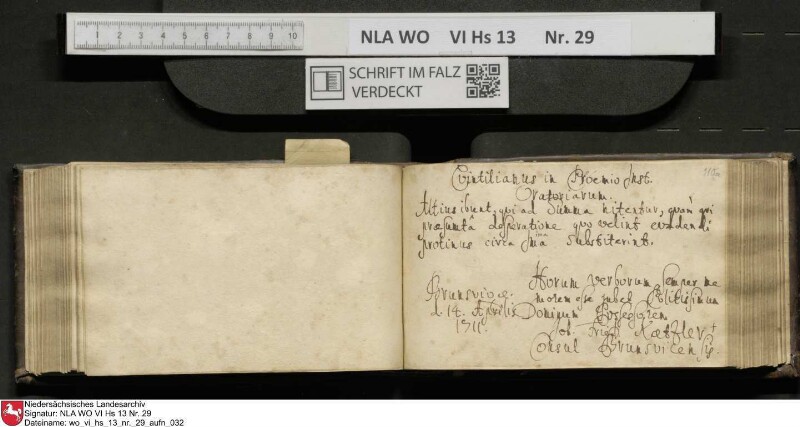 1 2 3 4 5 6 7 8 9 10
NLA WO VI Hs 13 Nr. 29
SCHRIFT IM FALZ
VERDECKT
Qvintilianus in Proemio Inst.
Oratoriarum.
Altius ibunt, qui ad Summa nitentur, quam qui
præsumtâ desperatione quo velint evadendi
protinus circa Ima Substiterint.
Horum verborum semper me
morem esse jubet Politissimum
Dominum Possessorem
Brunsvigæ
d. 14. Aprilis
1711.
Joh.
Consul Brunsvicensis.
Niedersächsisches Landesarchiv
Signatur: NLA WO VI Hs 13 Nr. 29
Dateiname: wo_vi_hs_13_nr._29_aufn_032